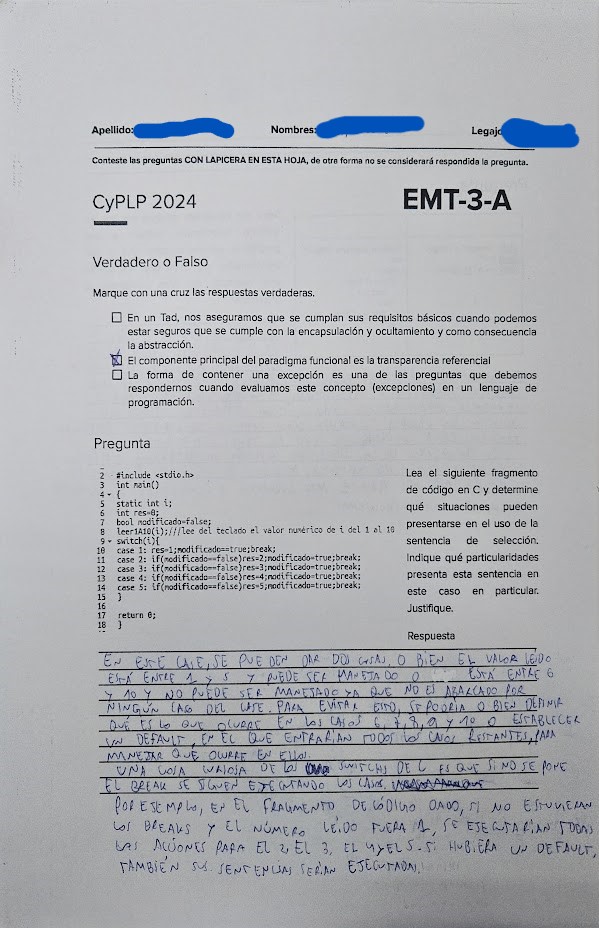 Apellido:
Nombres:
Legajo
Conteste las preguntas CON LAPICERA EN ESTA HOJA, de otra forma no se considerará respondida la pregunta.
CyPLP 2024
EMT-3-A
Verdadero o Falso
Marque con una cruz las respuestas verdaderas.
En un Tad, nos aseguramos que se cumplan sus requisitos básicos cuando podemos
estar seguros que se cumple con la encapsulación y ocultamiento y como consecuencia
la abstracción.
El componente principal del paradigma funcional es la transparencia referencial
La forma de contener una excepción es una de las preguntas que debemos
respondernos cuando evaluamos este concepto (excepciones) en un lenguaje de
programación.
Pregunta
2 #include <stdio.h>
3 int main()
4 {
5 static int i;
6 int res=0;
7 bool modificado=false;
8 leer1A10(i);///lee del teclado el valor numérico de i del 1 al 10
9 switch(i){
10 case 1: res=1;modificado==true;break;
11 case 2: if(modificado==false)res=2;modificado=true;break;
12 case 3: if(modificado==false)res=3;modificado=true;break;
13 case 4: if(modificado==false)res=4;modificado=true;break;
14 case 5: if(modificado==false)res=5;modificado=true;break;
15 }
16
17 return 0;
18 }
Lea el siguiente fragmento
de código en C y determine
qué situaciones pueden
presentarse en el uso de la
sentencia de selección.
Indique qué particularidades
presenta esta sentencia en
este caso en particular.
Justifique.
Respuesta
EN ESTE CASE, SE PUEDEN DAR DOS COSAS, O BIEN EL VALOR LEIDO
ESTÁ ENTRE 1 Y 5 Y PUEDE SER MANEJADO O ESTÁ ENTRE 6
Y 10 Y NO PUEDE SER MANEJADO YA QUE NO ES ABARCADO POR
NINGÚN CASO DEL CASE. PARA EVITAR ESTO, SE PODRÍA O BIEN DEFINIR
QUÉ ES LO QUE OCURRE EN LOS CASOS 6, 7, 8, 9 Y 10 O ESTABLECER
UN DEFAULT, EN EL QUE ENTRARÍAN TODOS LOS CASOS RESTANTES, PARA
MANEJAR QUE OCURRE EN ELLOS.
UNA COSA CURIOSA DE LOS SWITCHS DE C ES QUE SI NO SE PONE
EL BREAK SE SIGUEN EJECUTANDO LOS CASOS.
POR EJEMPLO, EN EL FRAGMENTO DE CÓDIGO DADO, SI NO ESTUVIERAN
LOS BREAKS Y EL NÚMERO LEÍDO FUERA 1, SE EJECUTARÍAN TODAS
LAS ACCIONES PARA EL 2, EL 3, EL 4 Y EL 5. SI HUBIERA UN DEFAULT,
TAMBIÉN SUS SENTENCIAS SERÍAN EJECUTADAS.